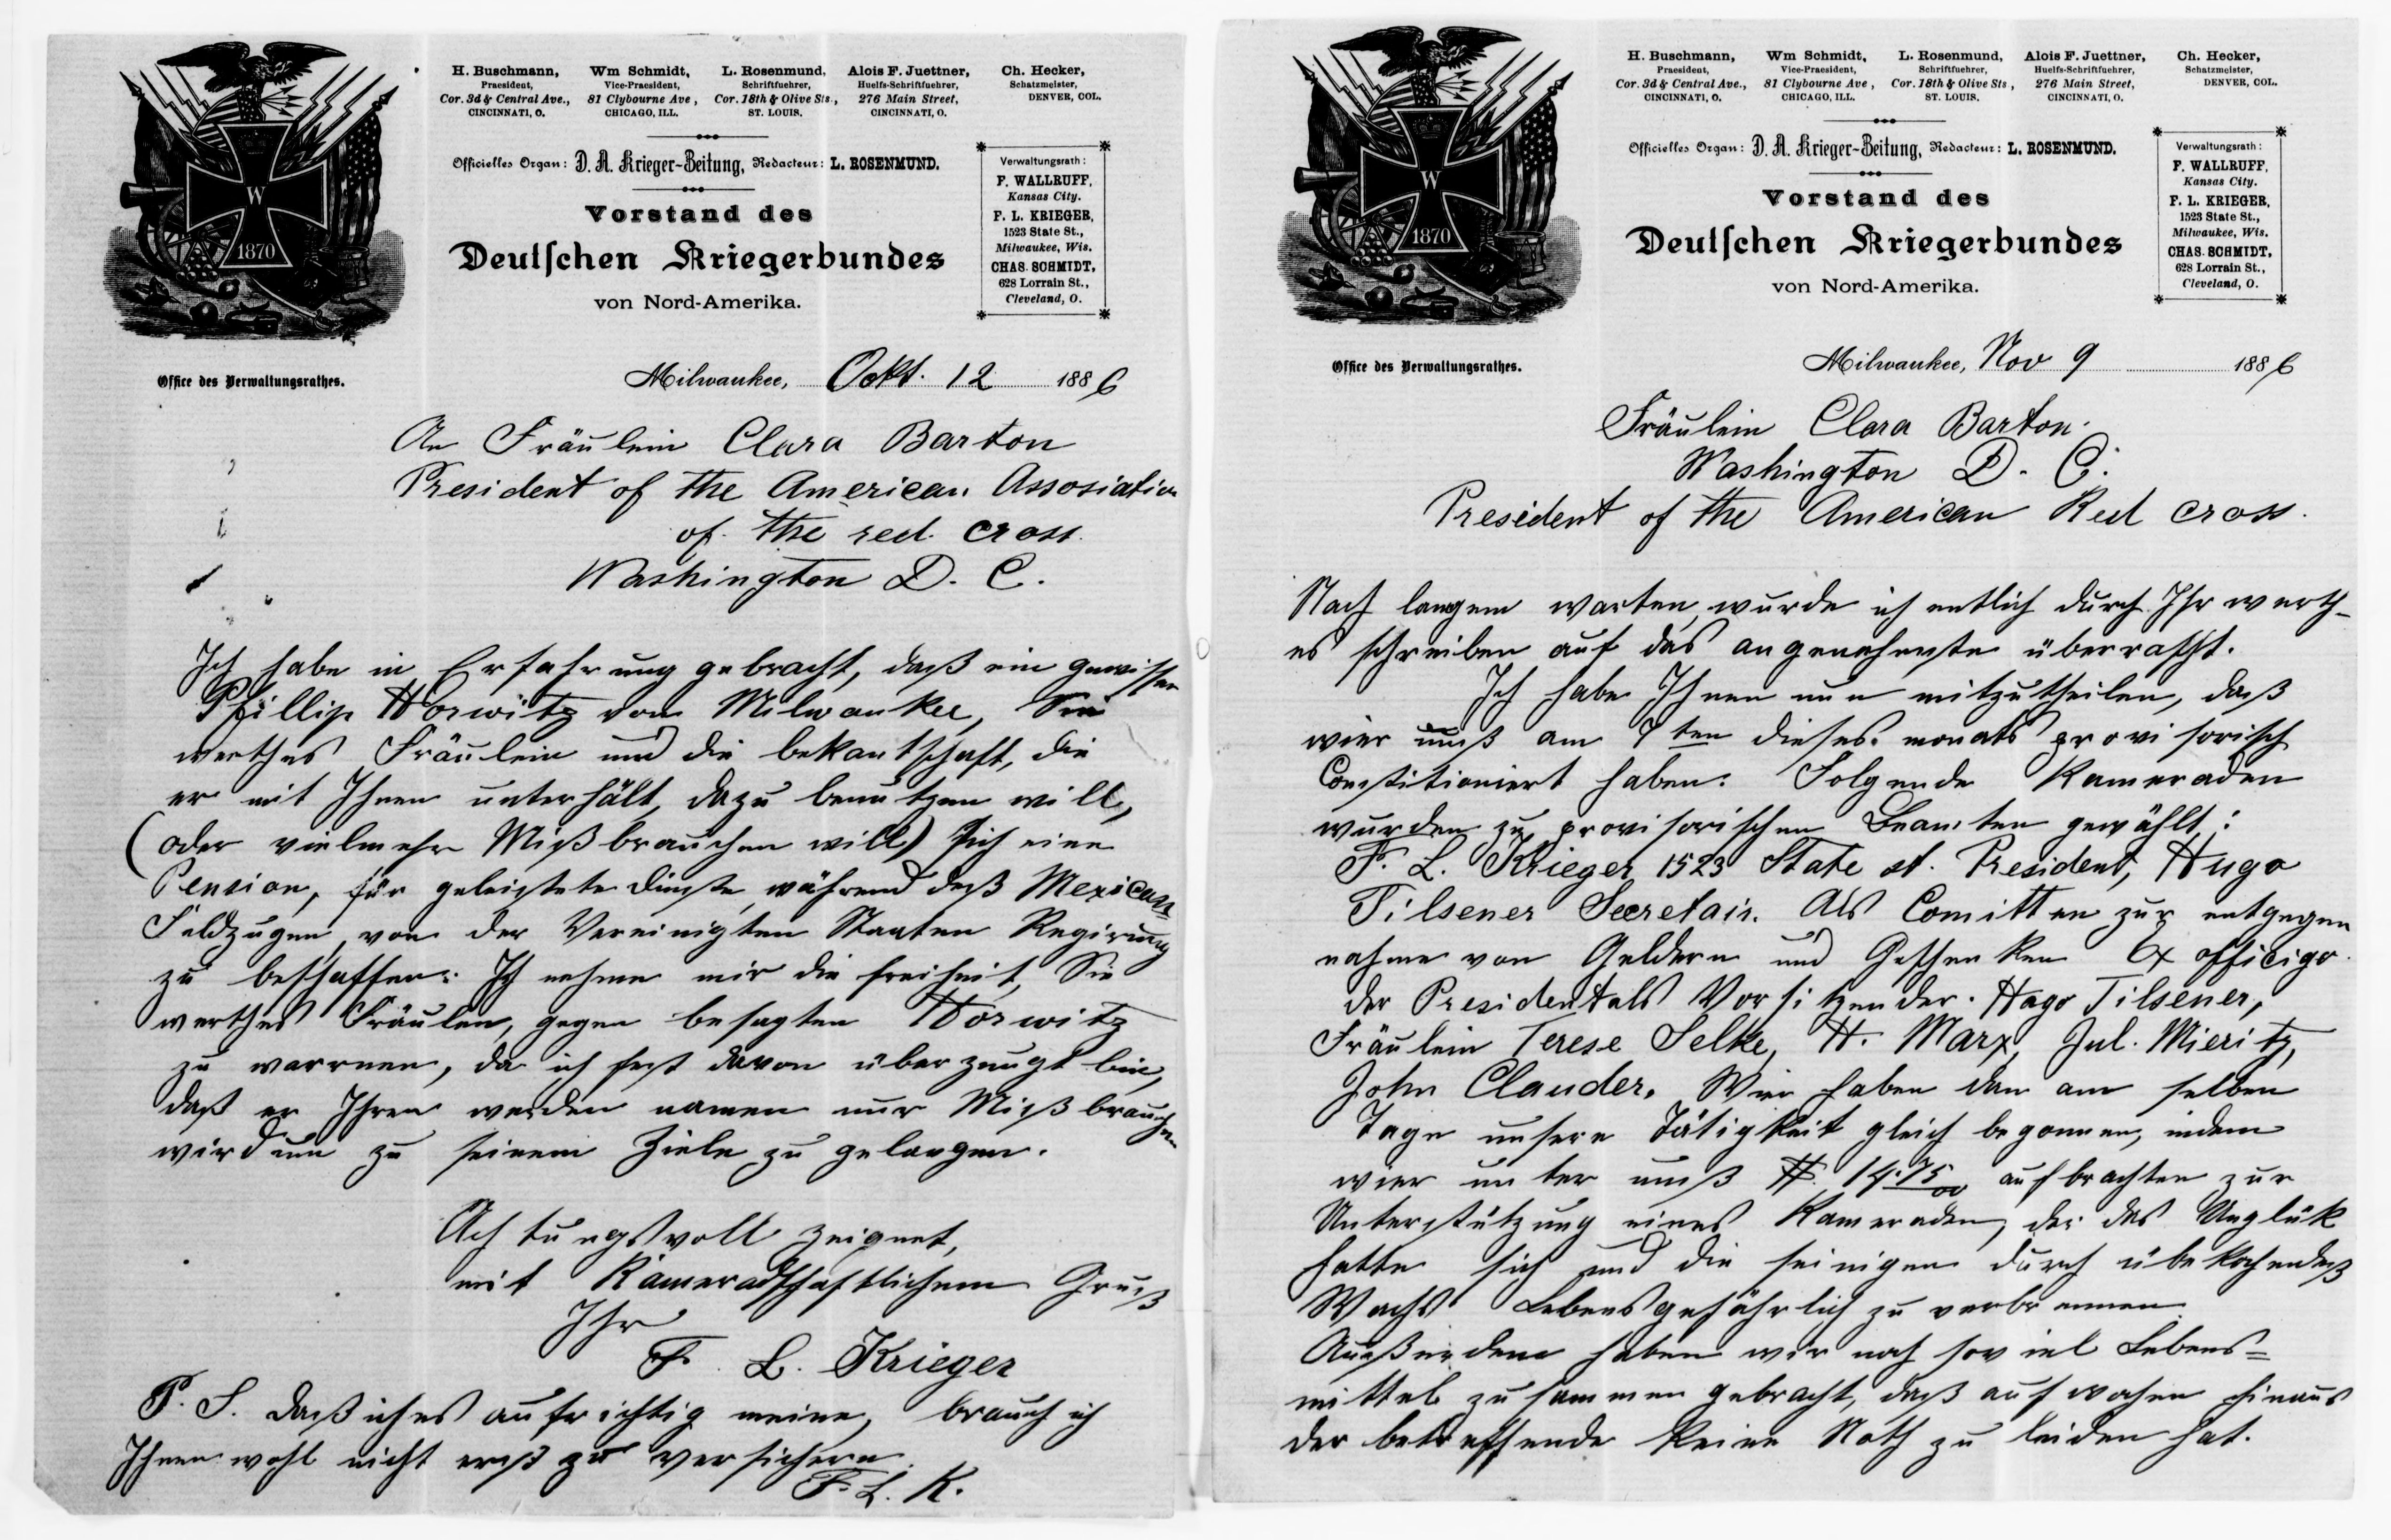 H. Buschmann,
Praesident,
Cor. 3d & Central Ave.,
CINCINNATI, O.
Wm Schmidt,
Vice-Praesident,
81 Clybourne Ave,
CHICAGO, ILL.
L. Rosenmund,
Schriftfuehrer,
Cor. 18th & Olive Sts.,
ST. LOUIS.
Alois F. Juettner,
Huelfs-Schriftfuehrer,
276 Main Street,
CINCINNATI, O.
Ch. Hecker,
Schatzmeister,
DENVER, COL.
Officielles Organ: D. A. Krieger-Zeitung, Redacteur: L. ROSENMUND.
Vorstand des
Deutschen Kriegerbundes
von Nord-Amerika.
Verwaltungsrath:
F. WALLRUFF,
Kansas City.
F. L. KRIEGER,
1523 State St.,
Milwaukee, Wis.
CHAS. SCHMIDT,
628 Lorrain St.,
Cleveland, O.
W
1870
Office des Verwaltungsrathes.
Milwaukee, Ockt. 12 1886
An Fräulein Clara Barton
President of the American Assosiation
of the red cross.
Washington D. C.
Ich habe in Erfahrung gebracht, daß ein gewisser
Phillip Horwitz von Milwaukee, Sie
werthes Fräulein und die bekantschaft, die
er mit Ihnen unterhält, dazu benutzen will,
(oder vielmehr Mißbrauchen will) sich eine
Pension, für geleistete dienste während deß Mexican
Feldzugen, von der Vereinigten Staaten Regirung
zu beschaffen. Ich nehme mir die freiheit, Sie
werthes Fräulen, gegen besagten Horwitz
zu warrnen, da ich fest davon überzeugt bin,
daß er Ihren werden namen nur Mißbrauchen
wird um zu seinem Ziele zu gelangen.
Achtungsvoll zeignet,
mit Kameradschaftlichem Gruß
Ihr
F. L. Krieger
P. S. Daß ich es aufrichtig meine, brauch ich
Ihnen wohl nicht erst zu versichern.
F. L. K.
H. Buschmann,
Praesident,
Cor. 3d & Central Ave.,
CINCINNATI, O.
Wm Schmidt,
Vice-Praesident,
81 Clybourne Ave,
CHICAGO, ILL.
L. Rosenmund,
Schriftfuehrer,
Cor. 18th & Olive Sts,
ST. LOUIS.
Alois F. Juettner,
Huelfs-Schriftfuehrer,
276 Main Street,
CINCINNATI, O.
Ch. Hecker,
Schatzmeister,
DENVER, COL.
Officielles Organ: D. A. Krieger-Zeitung, Redacteur: L. ROSENMUND.
Vorstand des
Deutschen Kriegerbundes
von Nord-Amerika.
Verwaltungsrath:
F. WALLRUFF,
Kansas City.
F. L. KRIEGER,
1523 State St.,
Milwaukee, Wis.
CHAS. SCHMIDT,
628 Lorrain St.,
Cleveland, O.
W
1870
Office des Verwaltungsrathes.
Milwaukee, Nov 9 1886
Fräulein Clara Barton.
Washington D. C.
President of the American Red cross.
Nach langem warten, wurde ich entlich durch Ihr werth-
es schreiben auf das angenehmste überrascht.
Ich habe Ihnen nun mitzutheilen, daß
wier unß am 7ten dieses monats provisorisch
Constitioniert haben. Folgende Kameraden
wurden zu provisorischen Beamten gewählt:
F. L. Krieger 1523 State st. President, Hugo
Tilsener Secretair. Als Comitten zur entgegen
nahme von Geldern und Geschenken Ex officigo
der President als Vorsitzender. Hugo Tilsener,
Fräulein Terese Selke, H. Marx, Jul. Mieritz,
John Clauder. Wier haben dan am selben
Tage unsere Tätigkeit gleich begonnen, indem
wier unter unß $ 14.75 aufbrachten zur
Unterstützung eines Kameraden, der das Unglük
hatte sich und die seinigen durch übekochendeß
Wachs Lebensgefährlich zu verbrennen
Außerdem haben wir noch soviel Lebens=
mittel zusammen gebracht, daß auf wochen hinaus
der betreffende keine Noth zu leiden hat.